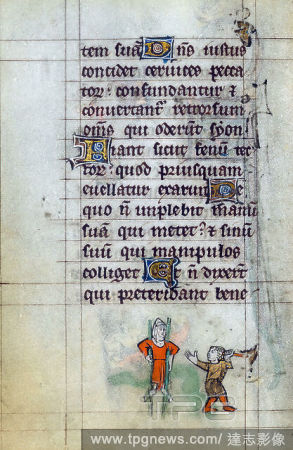 tem suā Dn̄s iustus
concidet ceruices pecca
tor: confundantur &
conuertant͛ retrorsum
om̄s qui oderūt syon
Fiant sicut fenū tec
tor: quod priusquam
euellatur exaruit De
quo n̄ implebit manū
suā qui metet: & sinū
suū qui manipulos
colliget Et n̄ dixerūt
qui preteribant bene
TPG
www.tpgnews.com / 達志影像